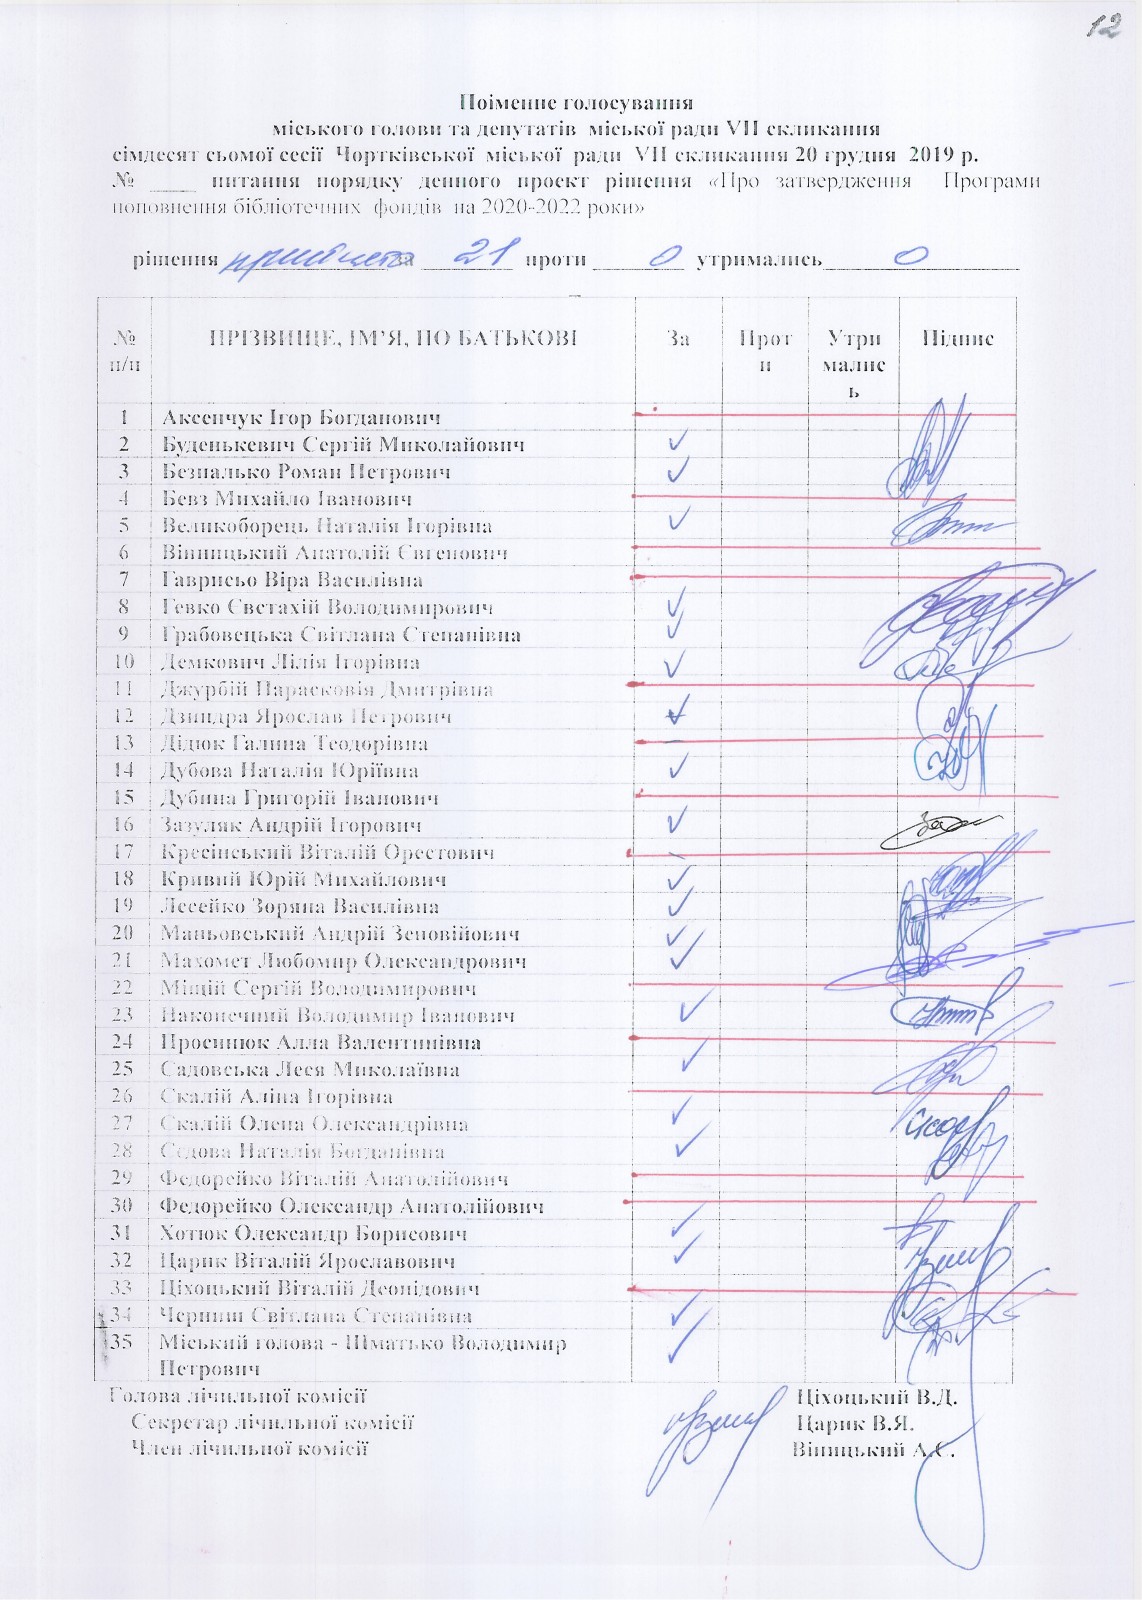 12
Поіменне голосування
міського голови та депутатів міської ради VII скликання
сімдесят сьомої сесії Чортківської міської ради VII скликання 20 грудня 2019 р.
№ ____ питання порядку денного проект рішення «Про затвердження Програми
поповнення бібліотечних фондів на 2020-2022 роки»
рішення прийнято за 21 проти 0 утримались 0
№ п/п ПРІЗВИЩЕ, ІМ’Я, ПО БАТЬКОВІ За Проти Утримались Підпис
1 Аксенчук Ігор Богданович
2 Буденькевич Сергій Миколайович
3 Безпалько Роман Петрович
4 Бевз Михайло Іванович
5 Великоборець Наталія Ігорівна
6 Вівницький Анатолій Євгенович
7 Гаврисьо Віра Василівна
8 Гевко Євстахій Володимирович
9 Грабовецька Світлана Степанівна
10 Демкович Лілія Ігорівна
11 Джурбій Парасковія Дмитрівна
12 Дзиндра Ярослав Петрович
13 Дідюк Галина Теодорівна
14 Дубова Наталія Юріївна
15 Дубина Григорій Іванович
16 Зазуляк Андрій Ігорович
17 Кресінський Віталій Орестович
18 Кривий Юрій Михайлович
19 Лесейко Зоряна Василівна
20 Маньовський Андрій Зеновійович
21 Махомет Любомир Олександрович
22 Міщій Сергій Володимирович
23 Наконечний Володимир Іванович
24 Просинюк Алла Валентинівна
25 Садовська Леся Миколаївна
26 Скалій Аліна Ігорівна
27 Скалій Олена Олександрівна
28 Сєдова Наталія Богданівна
29 Федорейко Віталій Анатолійович
30 Федорейко Олександр Анатолійович
31 Хотюк Олександр Борисович
32 Царик Віталій Ярославович
33 Ціхоцький Віталій Леонідович
34 Черниш Світлана Степанівна
35 Міський голова - Шматько Володимир
Петрович
Голова лічильної комісії Ціхоцький В.Л.
Секретар лічильної комісії Царик В.Я.
Член лічильної комісії Віницький А.Є.